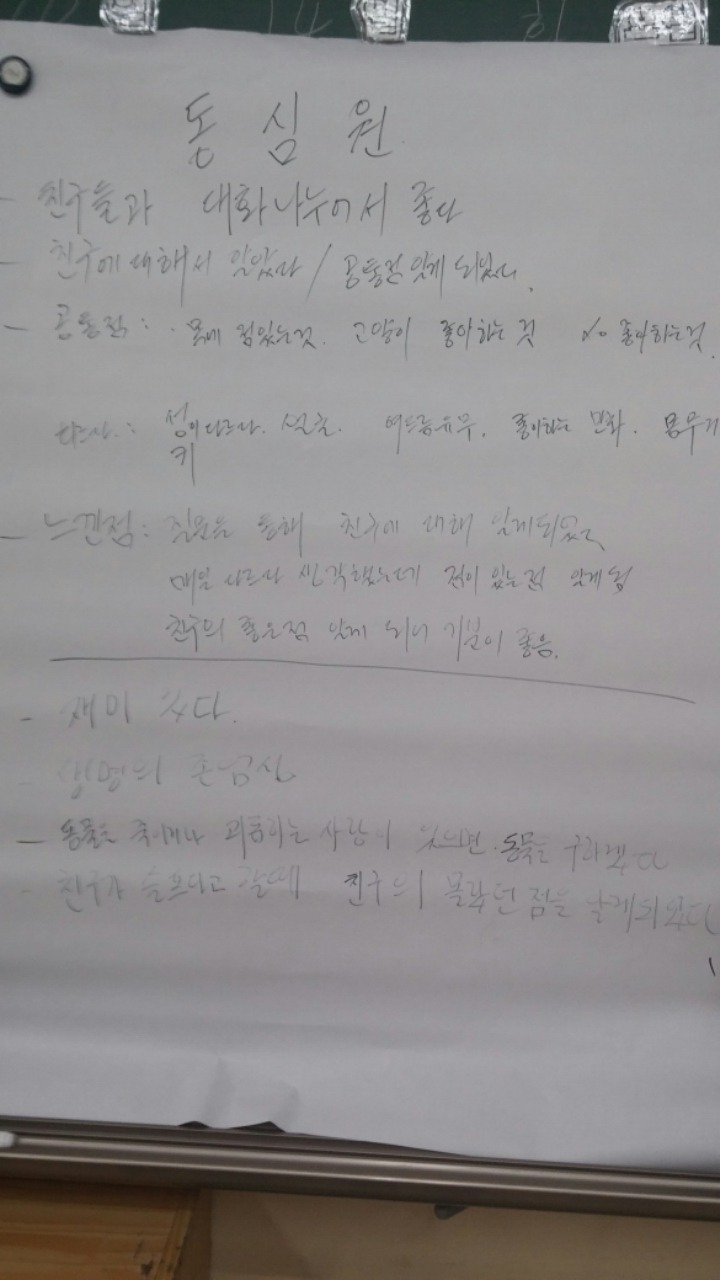 동심원
- 친구들과 대화나누어서 좋다
- 친구에 대해서 알았다 / 공통점 알게 되었다.
- 공통점 : · 목에 점있는것. 고양이 좋아하는 것 좋아하는것.
성이다르다. 여드름유무. 좋아하는 만화. 몸무게
키
- 느낀점 : 질문을 통해 친구에 대해 알게되었고
매일 다르다 생각했는데 점이 있는점 알게 됨
친구의 좋은점 알게 되니 기분이 좋음.
- 재미 있다.
- 생명의 존엄성
- 동물을 죽이거나 괴롭히는 사람이 있으면 · 동물을 구하겠다
- 친구가 슬프다고 할때 친구의 몰랐던 점을 알게되었다